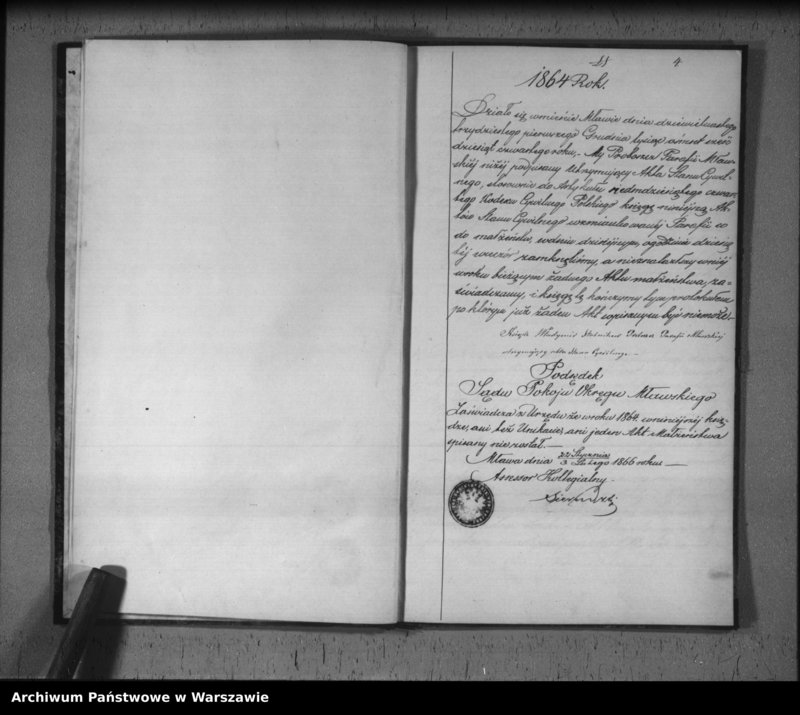 4
1864 Rok.
Działo się w mieście Mławie dnia dziewietnastego
trzydziestego pierwszego Grudnia tysiąc ośmset sześć
dziesiąt czwartego roku,- My Proboszcz Parafii Mław-
skiéj niżéj podpisany utrzymujący Akta Stanu Cywil-
nego, stosownie do Artykułu siedmdziesiątego czwar-
tego Kodexu Cywilnego Polskiego księgę niniejszą Ak-
tów Stanu Cywilnego wzmiankowanéj Parafii co
do małżeństw, w dniu dzisiéjszym, o godzinie dziesią
téj wieczór zamknęliśmy, a nieznalazłszy w niéj
w roku bieżącym żadnego Aktu małżeństwa, za=
świadczamy, i księgę tę kończymy tym protokułem
po którym już żaden Akt wpisanym być niemoże.-
Ksiądz Władysław Proboszcz Parafii Mławskiéj
utrzymujący akta Stanu Cywilnego.-
Podsędek
Sądu Pokoju Okręgu Mławskiego
Zaświadcza z Urzędu że w roku 1864 w niniejszéj księ-
dze, ani też Unikacie, ani jeden Akt Małżeństwa
spisany nie został.-
Mława dnia 22 Stycznia / 3 Lutego 1866 roku.-
Assessor Kollegialny.
Archiwum Państwowe w Warszawie